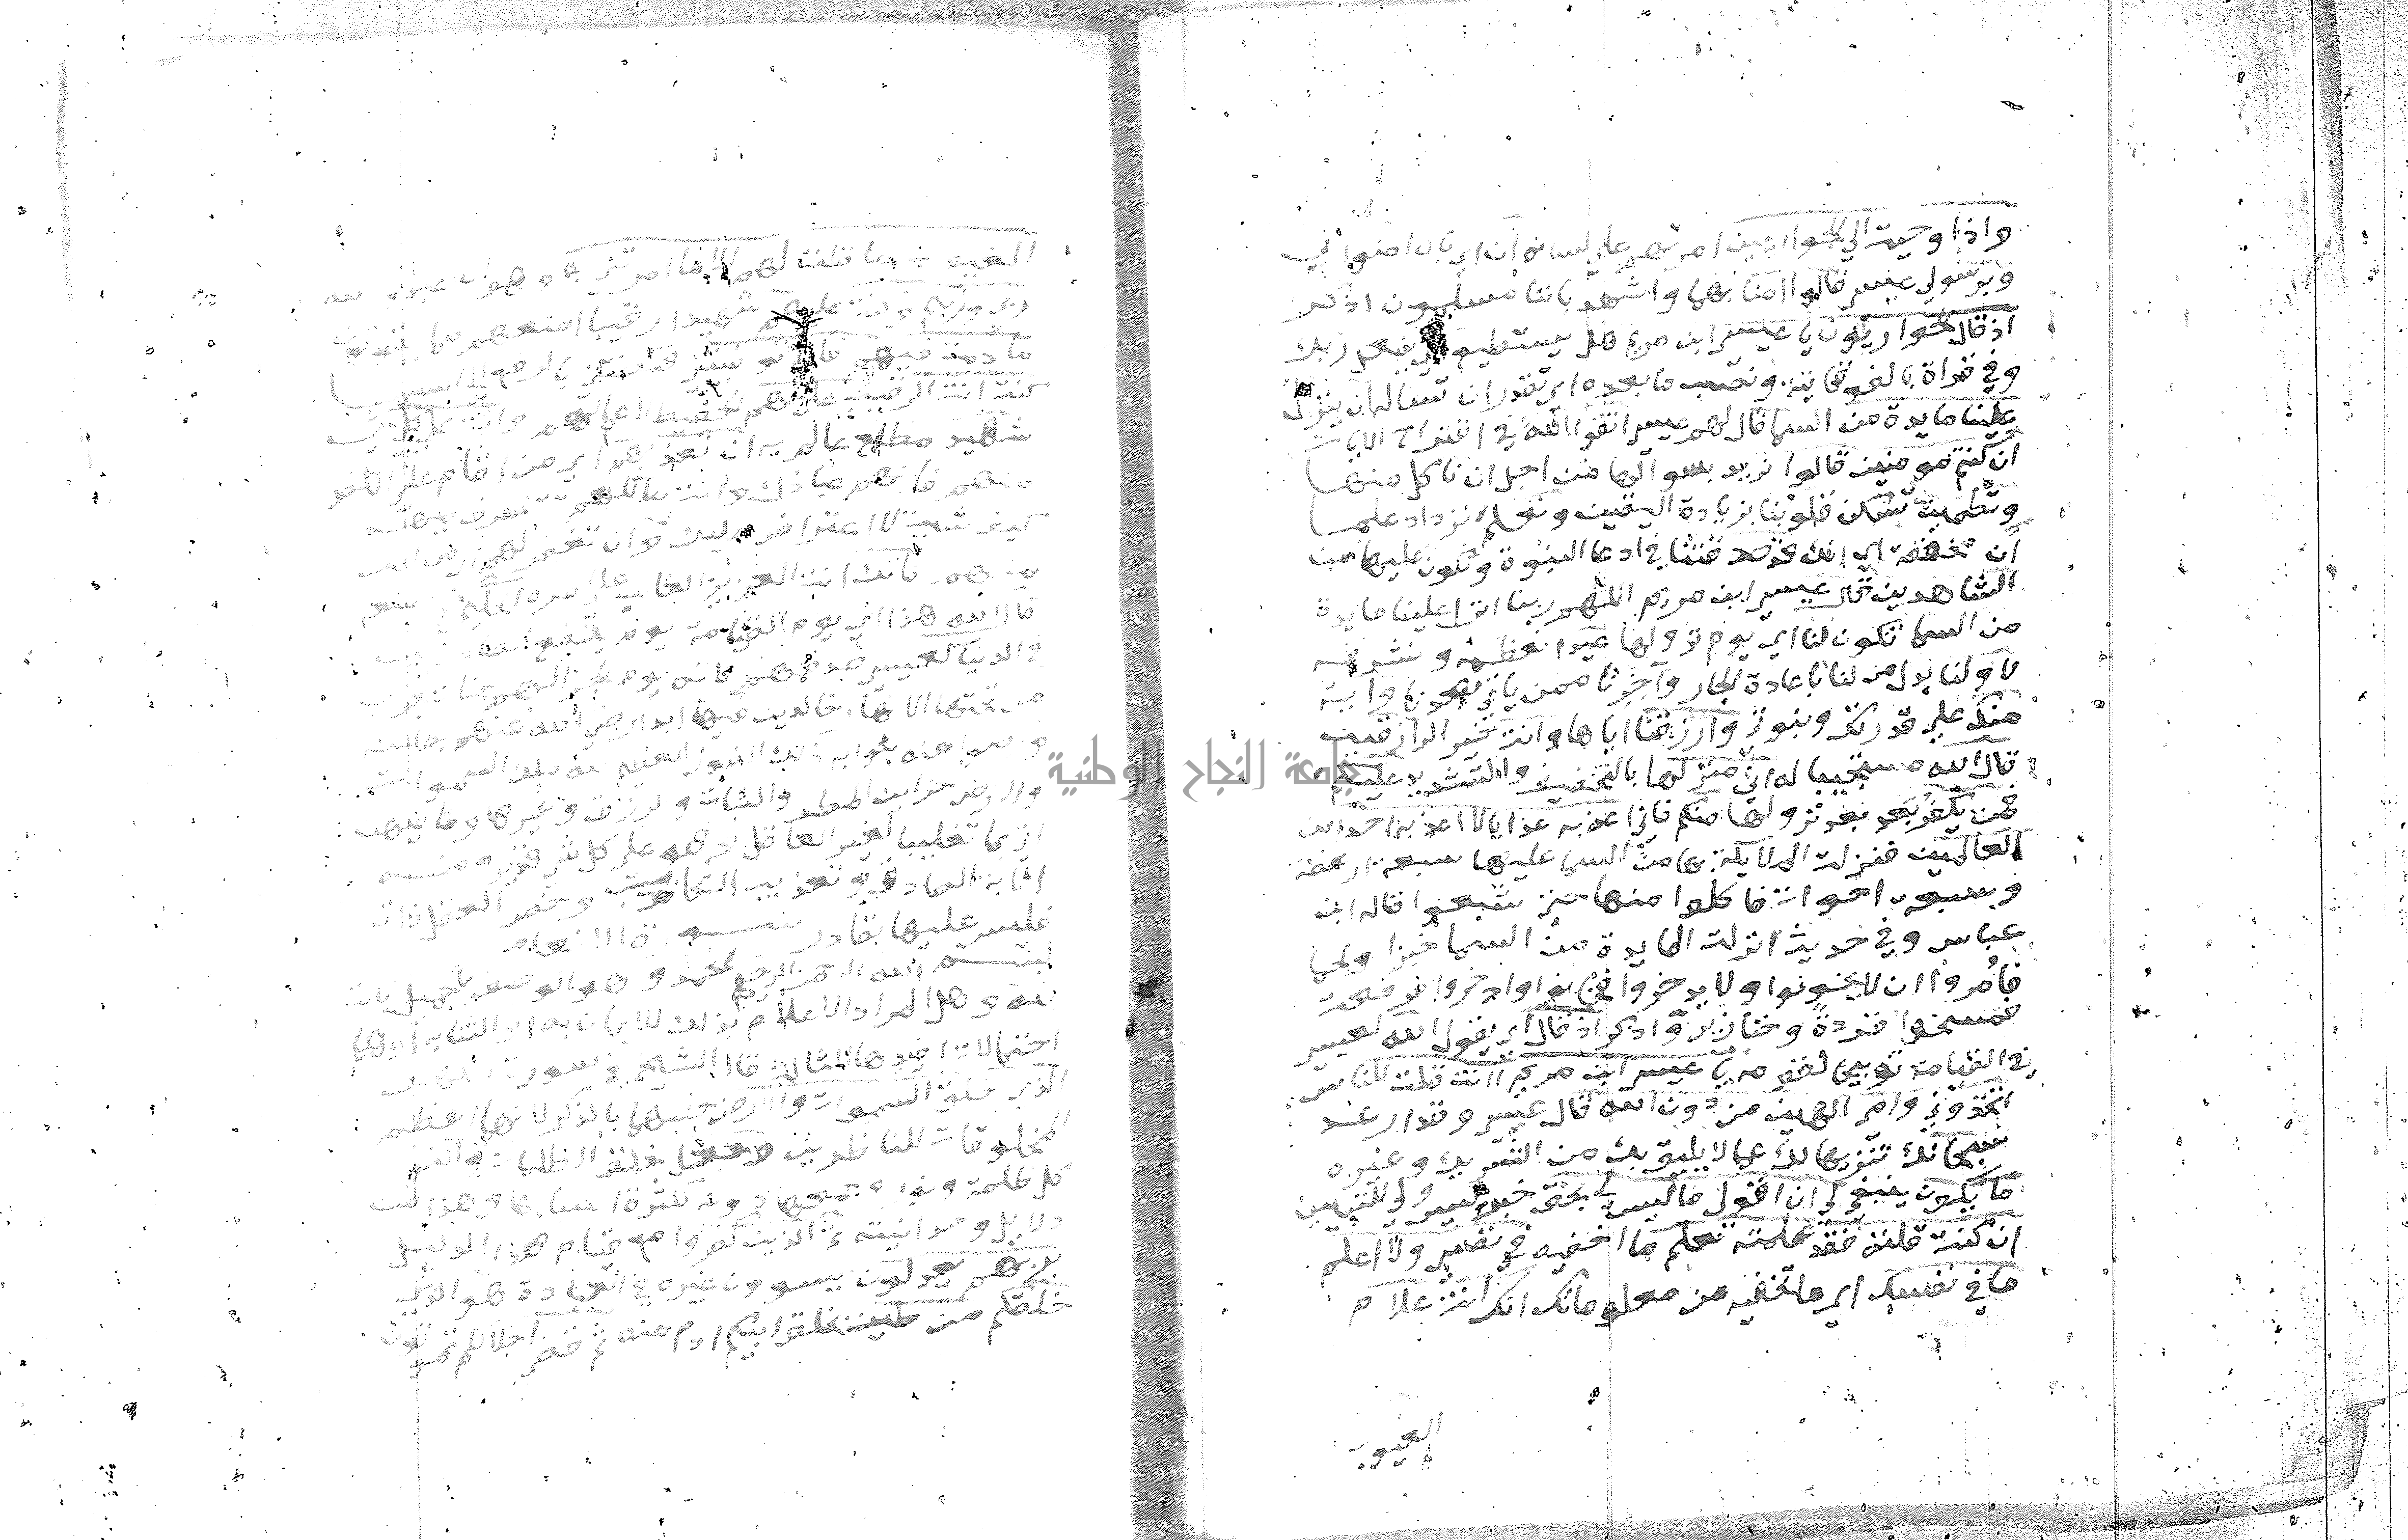 واذ اوحيت الي الحواريين امرتهم علي لسانه ان اي بان امنوا بي
وبرسولي عيسي قالوا امنا بهما واشهد باننا مسلمون اذكر
اذ قال الحواريون يا عيسي ابن مريم هل يستطيع اي يفعل ربك
وفي قراة بالفوقانية ونصب ما بعده اي تقدر ان تساله ان ينزل
علينا مايدة من السما قال لهم عيسي اتقوا الله في اقتراح الايات
ان كنتم مومنين قالوا نريد بسوالها من اجل ان ناكل منها
وتطمين تسكن قلوبنا بزيادة اليقين ونعلم نزداد علما
ان مخففة اي انك قد صدقتنا في ادعا النبوة ونكون عليها من
الشاهدين قال عيسي ابن مريم اللهم ربنا انزل علينا مايدة
من السما تكون لنا اي يوم نزولها عيدا نعظمه ونشرفه
لاولنا بدل من لنا باعادة الجار واخرنا ممن ياتي بعدنا واية
منك علي قدرتك ونبوتي وارزقنا اياها وانت خير الرازقين
قال الله مستجيبا له اني منزلها بالتخفيف والتشديد عليكم
فمن يكفر بعد بعد نزولها منكم فاني اعذبه عذابا لا اعذبه احدا من
العالمين فنزلت الملايكة بها من السما عليها سبعة ارغفة
وسبعة احوات فاكلوا منها حتي شبعوا قاله ابن
عباس وفي حديث انزلت المايدة من السما خبزا ولحما
فامروا ان لا يخونوا ولا يدخروا فخانوا وادخروا فرفعت
فمسخوا قردة وخنازير واذكر اذ قال اي يقول الله لعيسي
في القيامة توبيخا لقومه يا عيسي ابن مريم اانت قلت للناس
اتخذوني وامي الهين من دون الله قال عيسي وقد ارعد
سبحانك تنزيها لك عما لا يليق بك من الشريك وغيره
ما يكون ينبغي لي ان اقول ما ليس لي بحق خبر ليس ولي للتبيين
ان كنت قلته فقد علمته تعلم ما اخفيه في نفسي ولا اعلم
ما في نفسك اي ما تخفيه من معلوماتك انك انت علام
الغيوب
الغيوب ما قلت لهم الا ما امرتني به وهو ان اعبدوا الله
ربي وربكم وكنت عليهم شهيدا رقيبا امنعهم مما يقولون
ما دمت فيهم فلما توفيتني قبضتني بالرفع الي السما
كنت انت الرقيب عليهم الحفيظ لاعمالهم وانت علي كل شي
شهيد مطلع عالم به ان تعذبهم اي من اقام علي الكفر
منهم فانهم عبادك وانت مالكهم تتصرف فيهم
كيف شيت لا اعتراض عليك وان تغفر لهم اي لمن امن
منهم فانك انت العزيز الغالب علي امره الحكيم في صنعه
قال الله هذا اي يوم القيامة يوم ينفع الصادقين
في الدنيا كعيسي صدقهم لانه يوم الجزا لهم جنات تجري
من تحتها الانهار خالدين فيها ابدا رضي الله عنهم بطاعته
ورضوا عنه بثوابه ذلك الفوز العظيم لله ملك السموات
والارض خزاين المطر والنبات والرزق وغيرها وما فيهن
اتي بما تغليبا لغير العاقل وهو علي كل شي قدير ومنه
اثابة الصادق وتعذيب الكاذب وخص العقل ذاته
فليس عليها بقادر سورة الانعام
بسم الله الرحمن الرحيم الحمد وهو الوصف بالجميل ثابت
لله وهل المراد الاعلام بذلك للايمان به او الثنا به او هما
احتمالات افيدها الثالث قاله الشيخ في سورة الكهف
الذي خلق السموات والارض خصهما بالذكر لانهما اعظم
المخلوقات للناظرين وجعل خلق الظلمات والنور
كل ظلمة ونور وجمعها دونه لكثرة اسبابها وهذا من
دلايل وحدانيته ثم الذين كفروا مع قيام هذا الدليل
بربهم يعدلون يسوون غيره في العبادة هو الذي
خلقكم من طين بخلق ابيكم ادم منه ثم قضي اجلا لكم تموتون
جامعة النجاح الوطنية